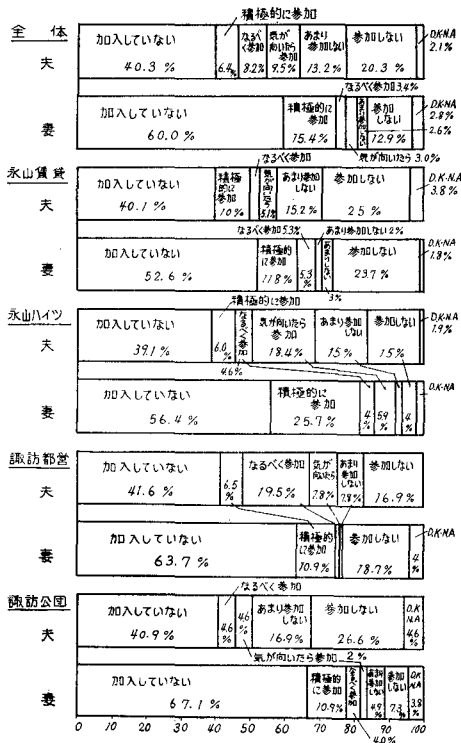 積極的に参加
全体
夫
加入していない
40.3%
6.4%
なるべく参加
8.2%
気が向いたら参加
9.5%
あまり参加しない
13.2%
参加しない
20.3%
D.K・NA
2.1%
なるべく参加3.4%
妻
加入していない
60.0%
積極的に参加
15.4%
あまり参加しない
参加しない
12.9%
D.K・NA
2.8%
2.6%
気が向いたら3.0%
永山賃貸
夫
なるべく参加
加入していない
40.1%
積極的に参加
10%
気が向いたら
5.1%
あまり参加しない
15.2%
参加しない
25%
D.K・NA
3.8%
なるべく参加5.3%
あまり参加しない2%
妻
加入していない
52.6%
積極的に参加
11.8%
5.3%
あまりしない
3%
参加しない
23.7%
D.K・NA
1.8%
永山ハイツ
夫
積極的に参加
加入していない
39.1%
6.0%
なるべく参加
4.6%
気が向いたら参加
18.4%
あまり参加しない
15%
参加しない
15%
D.K・NA
1.9%
妻
加入していない
56.4%
積極的に参加
25.7%
4%
5.9%
4%
D.K・NA
諏訪都営
夫
加入していない
41.6%
6.5%
なるべく参加
19.5%
気が向いたら
7.8%
あまり参加しない
7.8%
参加しない
16.9%
妻
加入していない
63.7%
積極的に参加
10.9%
参加しない
18.7%
4%
D.K・NA
諏訪公団
夫
なるべく参加
加入していない
40.9%
4.6%
4.6%
あまり参加しない
16.9%
参加しない
26.6%
D.K NA
4.6%
気が向いたら参加2%
妻
加入していない
67.1%
積極的に参加
10.9%
なるべく参加
4.0%
あまり参加しない
4.9%
参加しない
7.3%
D.K NA
3.8%
0 10 20 30 40 50 60 70 80 90 100